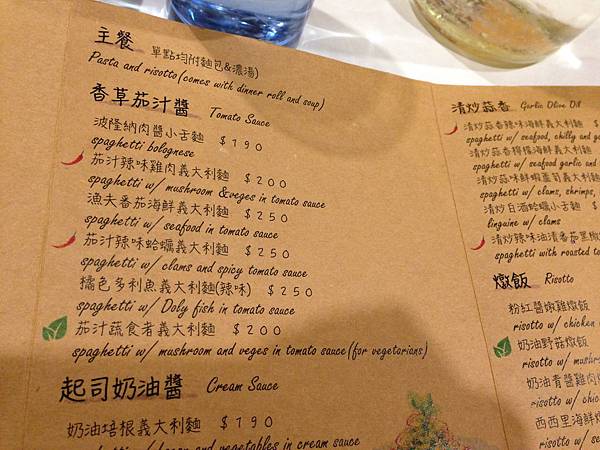 主餐 單點均附麵包&濃湯)
Pasta and risotto(comes with dinner roll and soup)
香草茄汁醬 Tomato Sauce
波隆納肉醬小舌麵 $190
spaghetti bolognese
茄汁辣味雞肉義大利麵 $200
spaghetti w/ mushroom &veges in tomato sauce
漁夫番茄海鮮義大利麵 $250
spaghetti w/ seafood in tomato sauce
茄汁辣味蛤蠣義大利麵 $250
spaghetti w/ clams and spicy tomato sauce
橘色多利魚義大利麵(辣味) $250
spaghetti w/ Doly fish in tomato sauce
茄汁蔬食者義大利麵 $200
spaghetti w/ mushroom and veges in tomato sauce(for vegetarians)
起司奶油醬 Cream Sauce
奶油培根義大利麵 $190
and vegetables in cream sauce
清炒蒜香 Garlic Olive Oil
清炒蒜香辣味海鮮義大利麵 $
spaghetti w/ seafood, chilly and g
清炒蒜香檸檬海鮮義大利麵
spaghetti w/ seafood garlic and
清炒蒜味鮮蝦蘆筍義大利麵
spaghetti w/ clams, shrimps,
清炒白酒蛤蠣小舌麵 $
linguine w/ clams
清炒辣味油漬番茄黑橄
spaghetti with roasted to
燉飯 Risotto
粉紅醬嫩雞燉飯
risotto w/ chicken
奶油野菇燉飯
risotto w/ mushr
奶油青醬雞肉燉
risotto w/ chic
西西里海鮮燉
risotto w/ sea